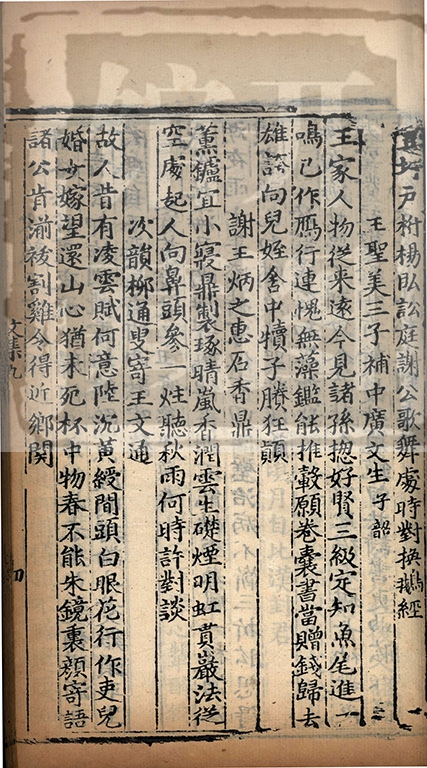 戸桁楊臥訟庭謝公歌舞處時對換鵝經
王聖美三子補中廣文生子韶
王家人物從来遠今見諸孫揔好賢三級定知魚尾進一
鳴已作鴈行連愧無藻鑑能推轂願卷囊書當贈錢歸去
雄誇向兒姪舍中犢子勝狂顛
謝王炳之惠石香鼎
薫鑪宜小寢鼎製琢晴嵐香潤雲生礎煙明虹貫巖法從
空處起人向鼻頭參一炷聽秋雨何時許對談
次韻柳通叟寄王文通
故人昔有凌雲賦何意陸沉黃綬間頭白眼花行作吏兒
婚女嫁望還山心猶未死杯中物春不能朱鏡裏顏寄語
諸公肯湔祓割雞今得近鄉関
文集九